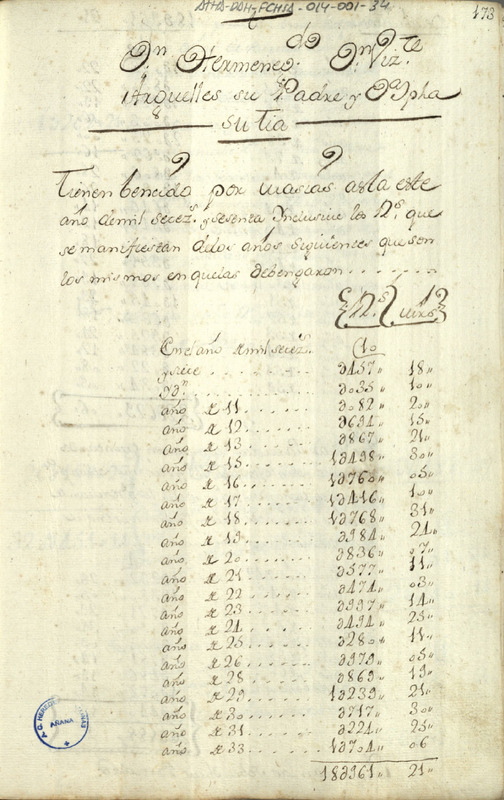 ATHA-DAH-FCHIA-014-001-34
173
Dn. Hermenegdo Dn. Vizte
Arguelles su Padre y
su tia
Tienen bencido por
año de mil setezs. y sesenta Inclusive los Rs. que
se manifiestan delos años siguientes que son
los mismos en que las debengaron . . . . . .
Rs.
En el año de mil setezs.
y siete . . . . . . 3457 " 18 "
Ydn. . . . . . . 3035 " 10 "
año de 11 . . . . . . 3082 " 20 "
año de 12 . . . . . . 3694 " 15 "
año de 13 . . . . . . 3867 " 21 "
año de 15 . . . . . . 13498 " 30 "
año de 16 . . . . . . 13760 " 05 "
año de 17 . . . . . . 13416 " 10 "
año de 18 . . . . . . 13768 " 31 "
año de 19 . . . . . . 3984 " 24 "
año de 20 . . . . . . 3836 " 07 "
año de 21 . . . . . . 3577 " 11 "
año de 22 . . . . . . 3474 " 03 "
año de 23 . . . . . . 3997 " 14 "
año de 24 . . . . . . 3494 " 25 "
año de 25 . . . . . . 3280 " 11 "
año de 26 . . . . . . 3979 " 05 "
año de 28 . . . . . . 3869 " 19 "
año de 29 . . . . . . 13239 " 21 "
año de 30 . . . . . . 3717 " 30 "
año de 31 . . . . . . 3224 " 25 "
año de 33 . . . . . . 13704 " 06
183961 " 21 "
ARANA